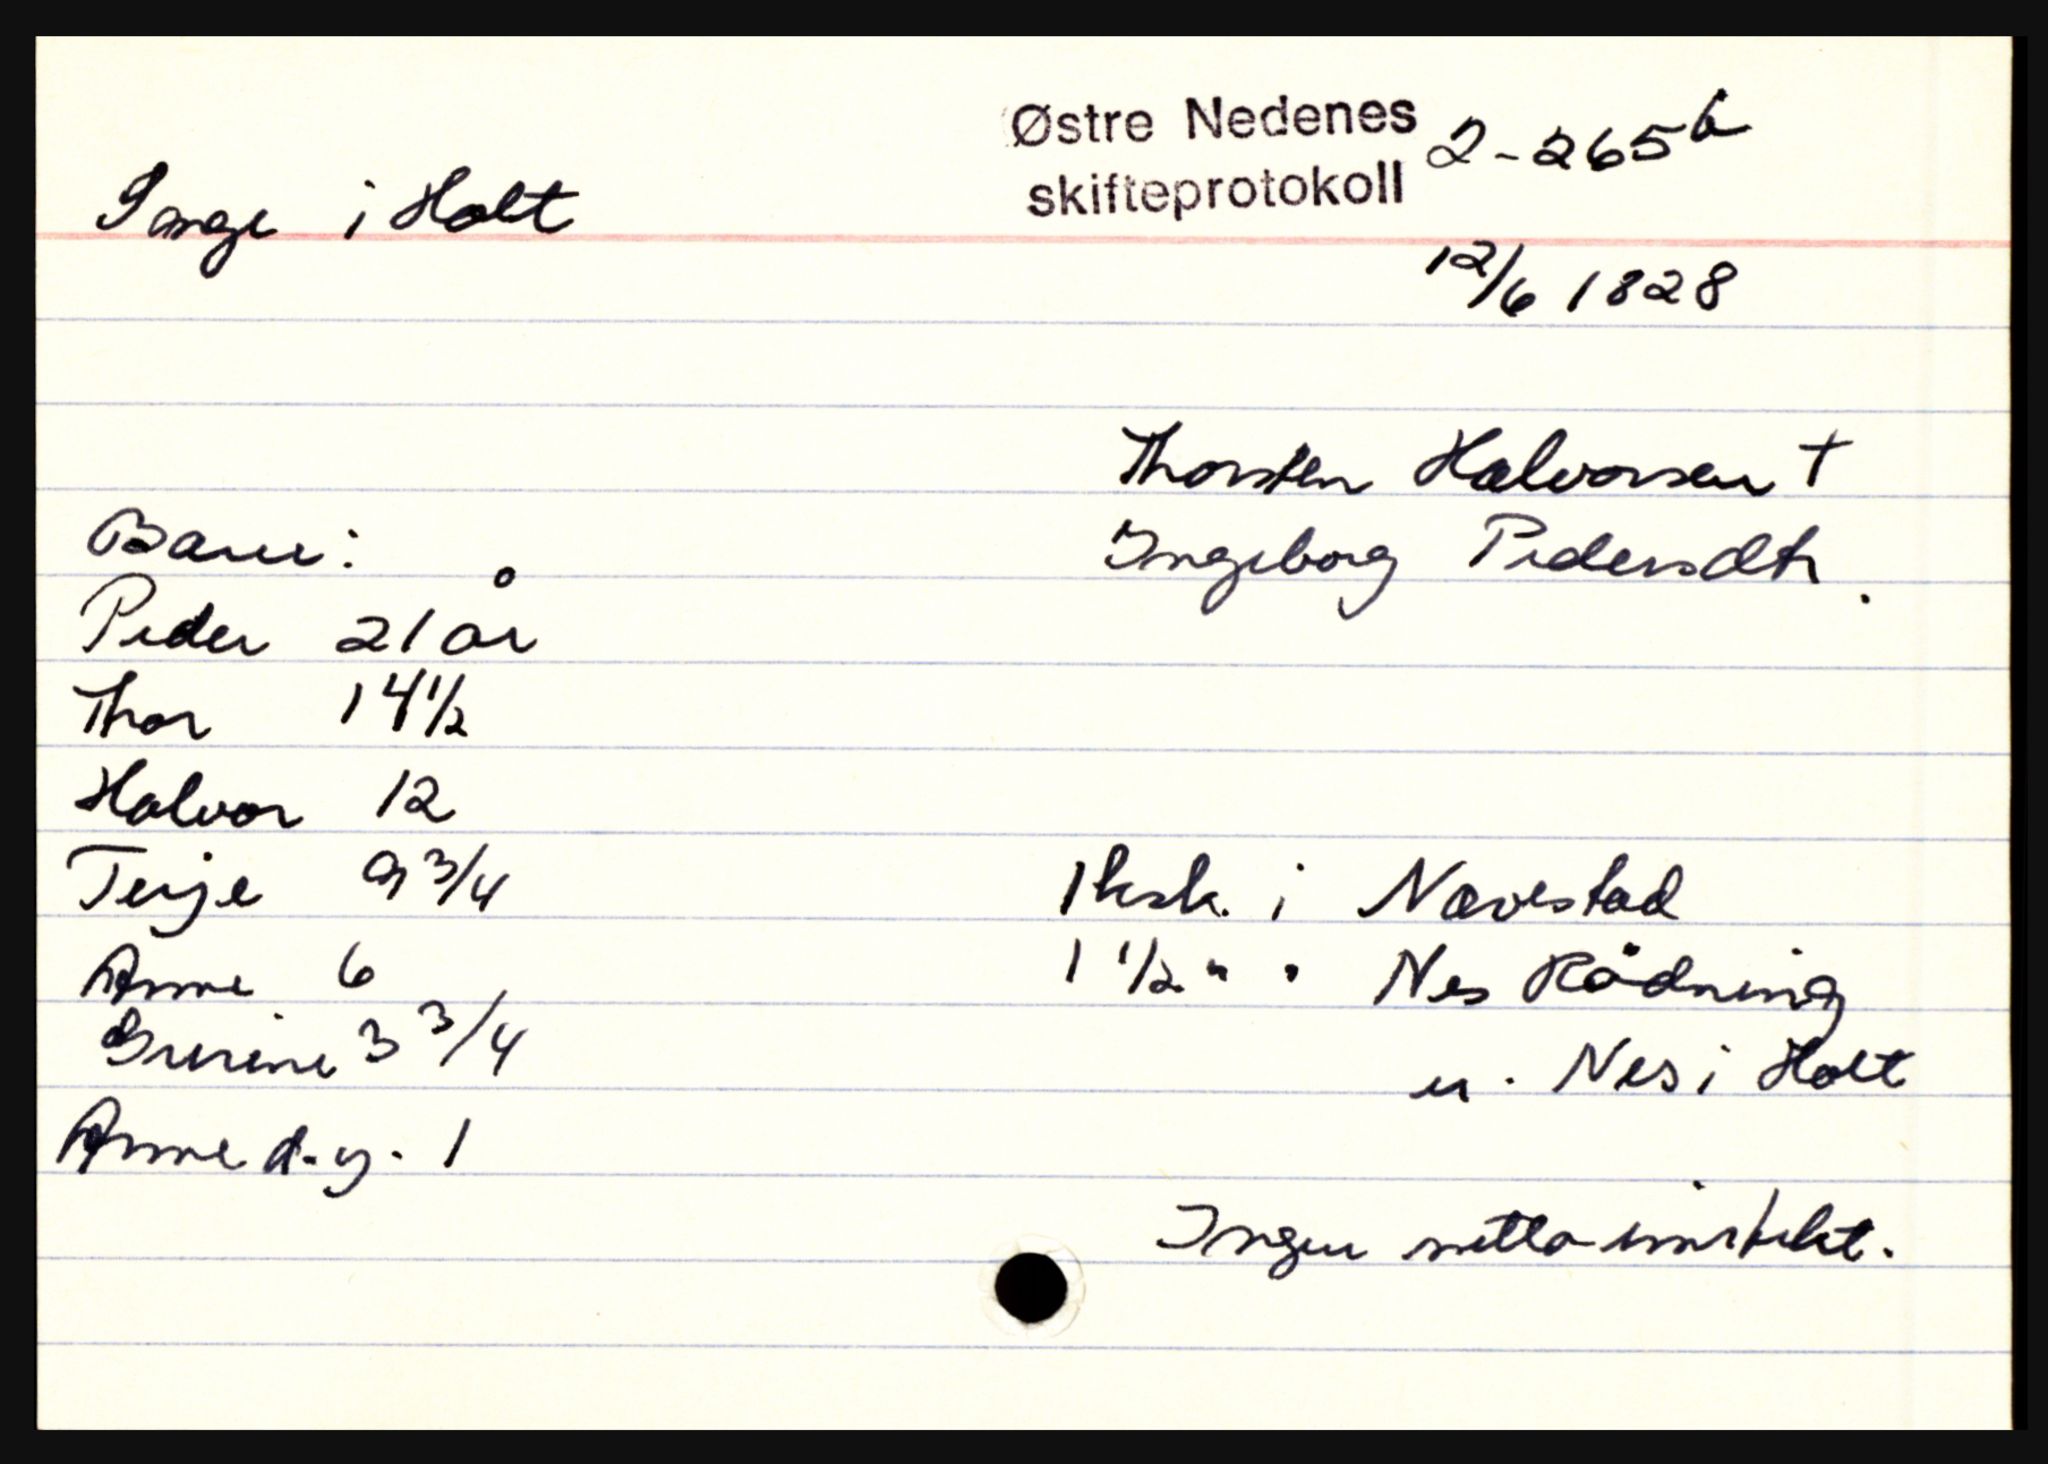 Østre Nedenes 2-265b
skifteprotokoll
Songe i Holt
12/6 1828
Thorsten Halvorsen +
Barn:
Ingeborg Pedersdtr.
Peder 21 år
Thor 14 1/2
Halvor 12
Terje 9 3/4
1 hsk. i Navestad
Anne 6
1 1/2 " " Nes Rödning
3 3/4
u. Nes i Holt
Anne d.y. 1
Ingen netto inntekt.